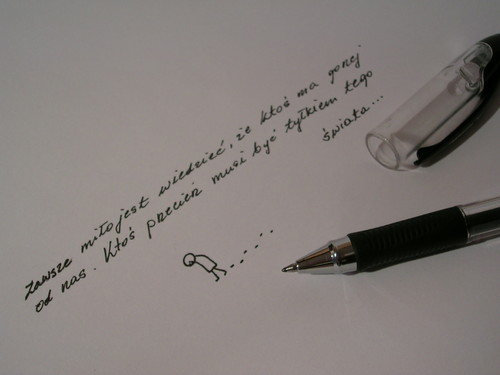 Zawsze miło jest wiedzieć, że ktoś ma gorzej
od nas. Ktoś przecież musi być tyłkiem tego
świata...